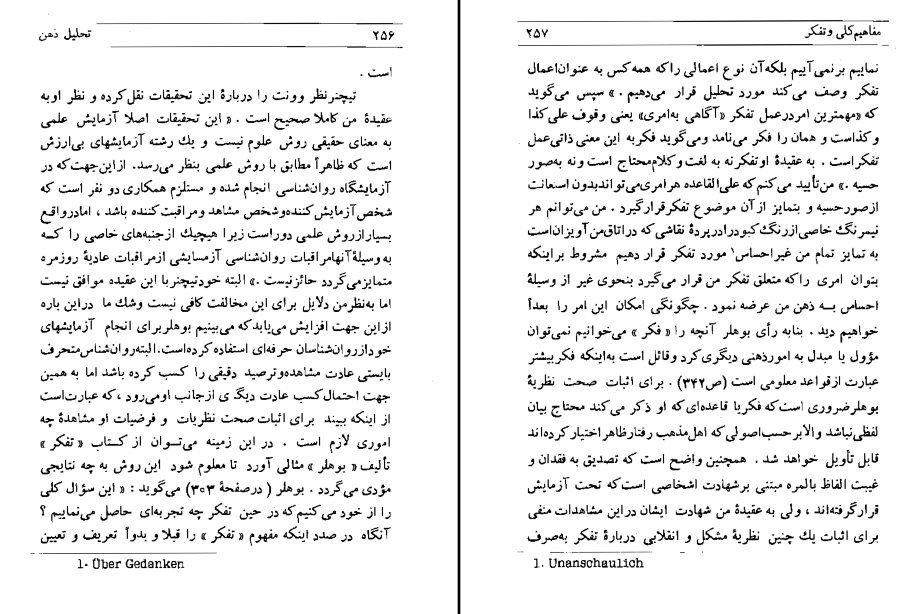 ۲۵۶ تحلیل ذهن
است .
تیچنر نظر وونت را دربارهٔ این تحقیقات نقل کرده و نظر او به
عقیدهٔ من کاملا صحیح است . « این تحقیقات اصلا آزمایش علمی
به معنای حقیقی روش علوم نیست و یك رشته آزمایشهای بی‌ارزش
است که ظاهراً مطابق با روش علمی بنظر می‌رسد. ازاین‌جهت‌که در
آزمایشگاه روان‌شناسی انجام شده و مستلزم همکاری دو نفر است که
شخص آزمایش کننده‌وشخص مشاهد ومراقبت‌کننده باشد ، امادرواقع
بسیارازروش علمی دوراست زیرا هیچیك ازجنبه‌های خاصی را کــه
به وسیلهٔ آنهامراقبات روان‌شناسی آزمسایشی ازمراقبات عادیهٔ روزمره
متمایزمی‌گردد حائزنیست .» البته خودتیچنربا این عقیده موافق نیست
اما به‌نظرمن دلایل برای این مخالفت کافی نیست وشك ما دراین باره
ازاین جهت افزایش می‌یابدکه می‌بینیم بوهلربرای انجام آزمایشهای
خود ازروان‌شناسان حرفه‌ای استفاده کرده‌است.البته‌روان‌شناس‌متحرف
بایستی عادت مشاهده‌وترصید دقیقی را کسب کرده باشد اما به همین
جهت احتمال‌کسب عادت دیگـ ی ازجانب اومی‌رود ،که عبارت‌است
از اینکه ببیند برای اثبات صحت نظریات و فرضیات او مشاهدهٔ چه
اموری لازم است . در این زمینه می‌تــوان از کتــاب « تفکر »
تألیف« بوهلر » مثالی آورد تا معلوم شود این روش به چه نتایجی
مؤدی می‌گردد . بوهلر ( درصفحهٔ ۳۰۳) می‌گوید : « این سؤال کلی
را از خود می‌کنیم‌که در حین تفکر چه تجربه‌ای حاصل می‌نماییم ؟
آنگاه در صدد اینکه مفهوم « تفکر » را قبلا و بدوأ تعریف و تعیین
1. Über Gedanken
مفاهیم‌کلی و تفکر ۲۵۷
نماییم برنمی‌آییم بلکه‌آن نوع اعمالی راکه همه‌کس به عنوان‌اعمال
تفکر وصف می‌کند مورد تحلیل قرار می‌دهیم .» سپس می‌گوید
که «مهمترین امردرعمل تفکر «آگاهی به‌امری» یعنی وقوف علی‌کذا
وکذاست و همان را فکر می‌نامد ومی‌گوید فکربه این معنی ذاتی‌عمل
تفکراست . به عقیدهٔ اوتفکرنه به لغت وکلام‌محتاج است ونه به‌صور
حسیه .» من‌تأیید می‌کنم‌که علی‌القاعده هرامری‌می‌تواندبدون استعانت
ازصورحسیه و بتمایز از آن موضوع تفکرقرارگیرد . من می‌توانم هر
نیمرنگ خاصی ازرنگ‌کبودرادرپردهٔ نقاشی که دراتاق‌من آویزان‌است
به تمایز تمام من غیراحساس۱ مورد تفکر قرار دهیم مشروط براینکه
بتوان امری راکه متعلق تفکر من قرار می‌گیرد بنحوی غیر از وسیلهٔ
احساس بــه ذهن من عرضه نمود . چگونگی امکان این امر را بعداً
خواهیم دید . بنابه رأی بوهلر آنچه را « فکر » می‌خوانیم نمی‌توان
مؤول یا مبدل به امورذهنی دیگری‌کرد وقائل است به‌اینکه فکربیشتر
عبارت ازقواعد معلومی است (ص۳۴۲) . برای اثبات صحت نظریهٔ
بوهلرضروری است‌که فکریا قاعده‌ای‌که او ذکر می‌کند محتاج بیان
لفظی‌نباشد والابرحسب‌اصولی‌که اهل‌مذهب رفتارظاهراختیار کرده‌اند
قابل تأویل خواهد شد . همچنین واضح است که تصدیق به فقدان و
غیبت الفاظ بالمره مبتنی برشهادت اشخاصی است‌که تحت آزمایش
قرارگرفته‌اند ، ولی به عقیدهٔ من شهادت ایشان دراین مشاهدات منفی
برای اثبات یك چنین نظریهٔ مشکل و انقلابی دربارهٔ تفکر به‌صرف
1. Unanschaulich